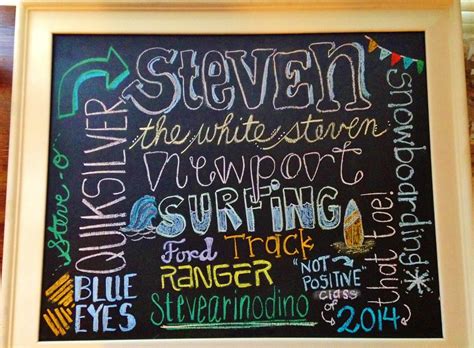 Steven
the white steven
Newport
SURFING
Ford Track
RANGER
Stevearinodino
"NOT POSITIVE"
class of
2014
steve-o
QUIKSILVER
BLUE
EYES
snowboarding
that toe!